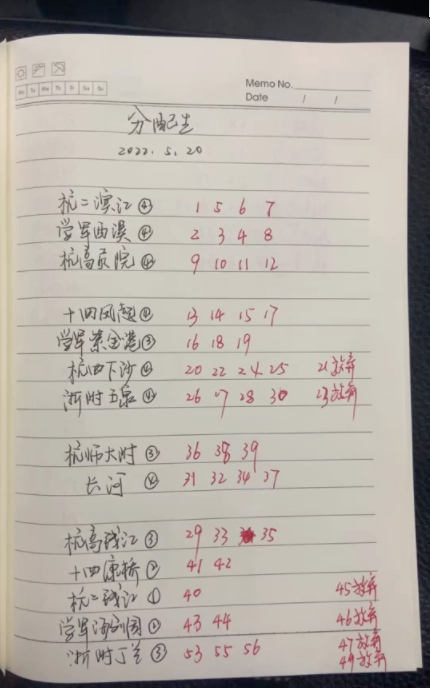 Mo Tu We Th Fr Sa Su
Memo No.
Date / /
分配生
2022.5.20
杭二滨江④ 1 5 6 7
学军西溪④ 2 3 4 8
杭高贡院④ 9 10 11 12
十四凤起④ 13 14 15 17
学军紫金港③ 16 18 19
杭四下沙④ 20 22 24 25 21放弃
浙附玉泉④ 26 27 28 30 23放弃
杭师大附③ 36 38 39
长河④ 31 32 34 37
杭高钱江③ 29 33 35
十四康桥② 41 42
杭二钱江① 40 45放弃
学军海创园② 43 44 46放弃
浙附丁兰③ 53 55 56 47放弃
49放弃